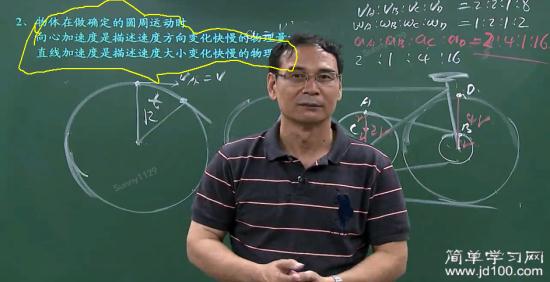 2、物体在做确定的圆周运动时
向心加速度是描述速度方向变化快慢的物理量
直线加速度是描述速度大小变化快慢的物理
vA:vB:vC:vD = 2:2:1:8
ωA:ωB:ωC:ωD = 1:2:1:2
aA:aB:aC:aD = 2:4:1:16
2 :1 :4 :16
vA=v
R
A
C
B
D
Sunny1129
简单学习网
www.jd100.com